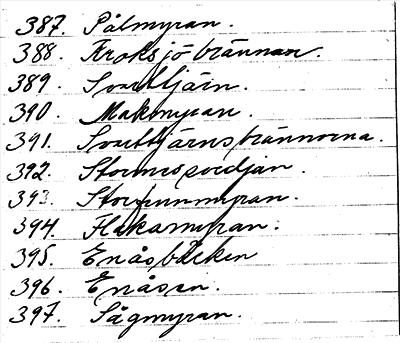 387. Pålmyran.
388. Kroksjöbrännan.
389. Svarttjärn.
390. Makmyran.
391. Svarttjärnsbrännorna.
392.
393. Storfinnmyran.
394. Flakamyran.
395. Enåsbäcken
396. Enåsen.
397. Sågmyran.